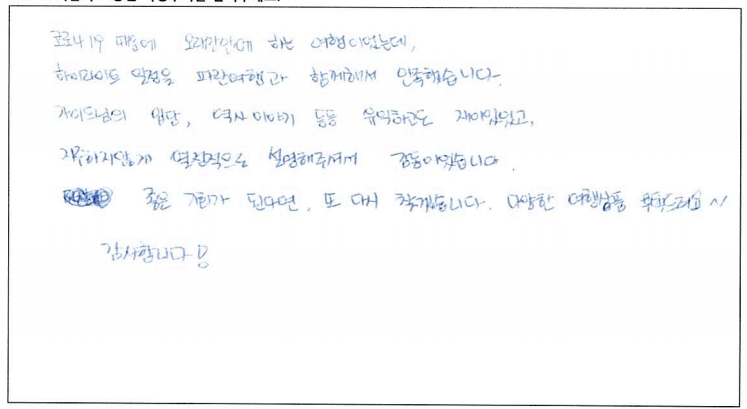 코로나19 때문에 오래간만에 하는 여행이었는데,
하이라이트 일정을 파란여행과 함께해서 만족했습니다.
가이드님의 입담, 역사 이야기 등등 유익하고도 재미있었고,
지루하지않게 열정적으로 설명해주셔서 감동이었습니다.
좋은 기회가 된다면, 또 다시 찾겠습니다. 다양한 여행상품 부탁드리고~
감사합니다!